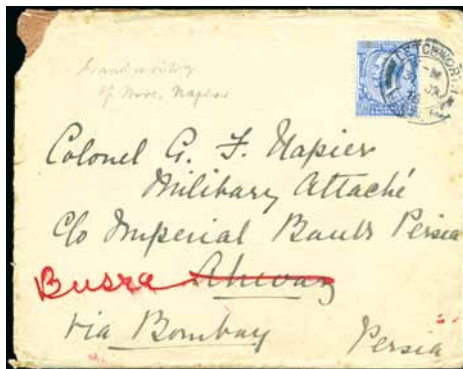 Handwriting
of Mrs. Napier
LETCHWORTH
Colonel G. F. Napier
Military Attaché
c/o Imperial Bank Persia
Busra Ahwaz
via Bombay Persia